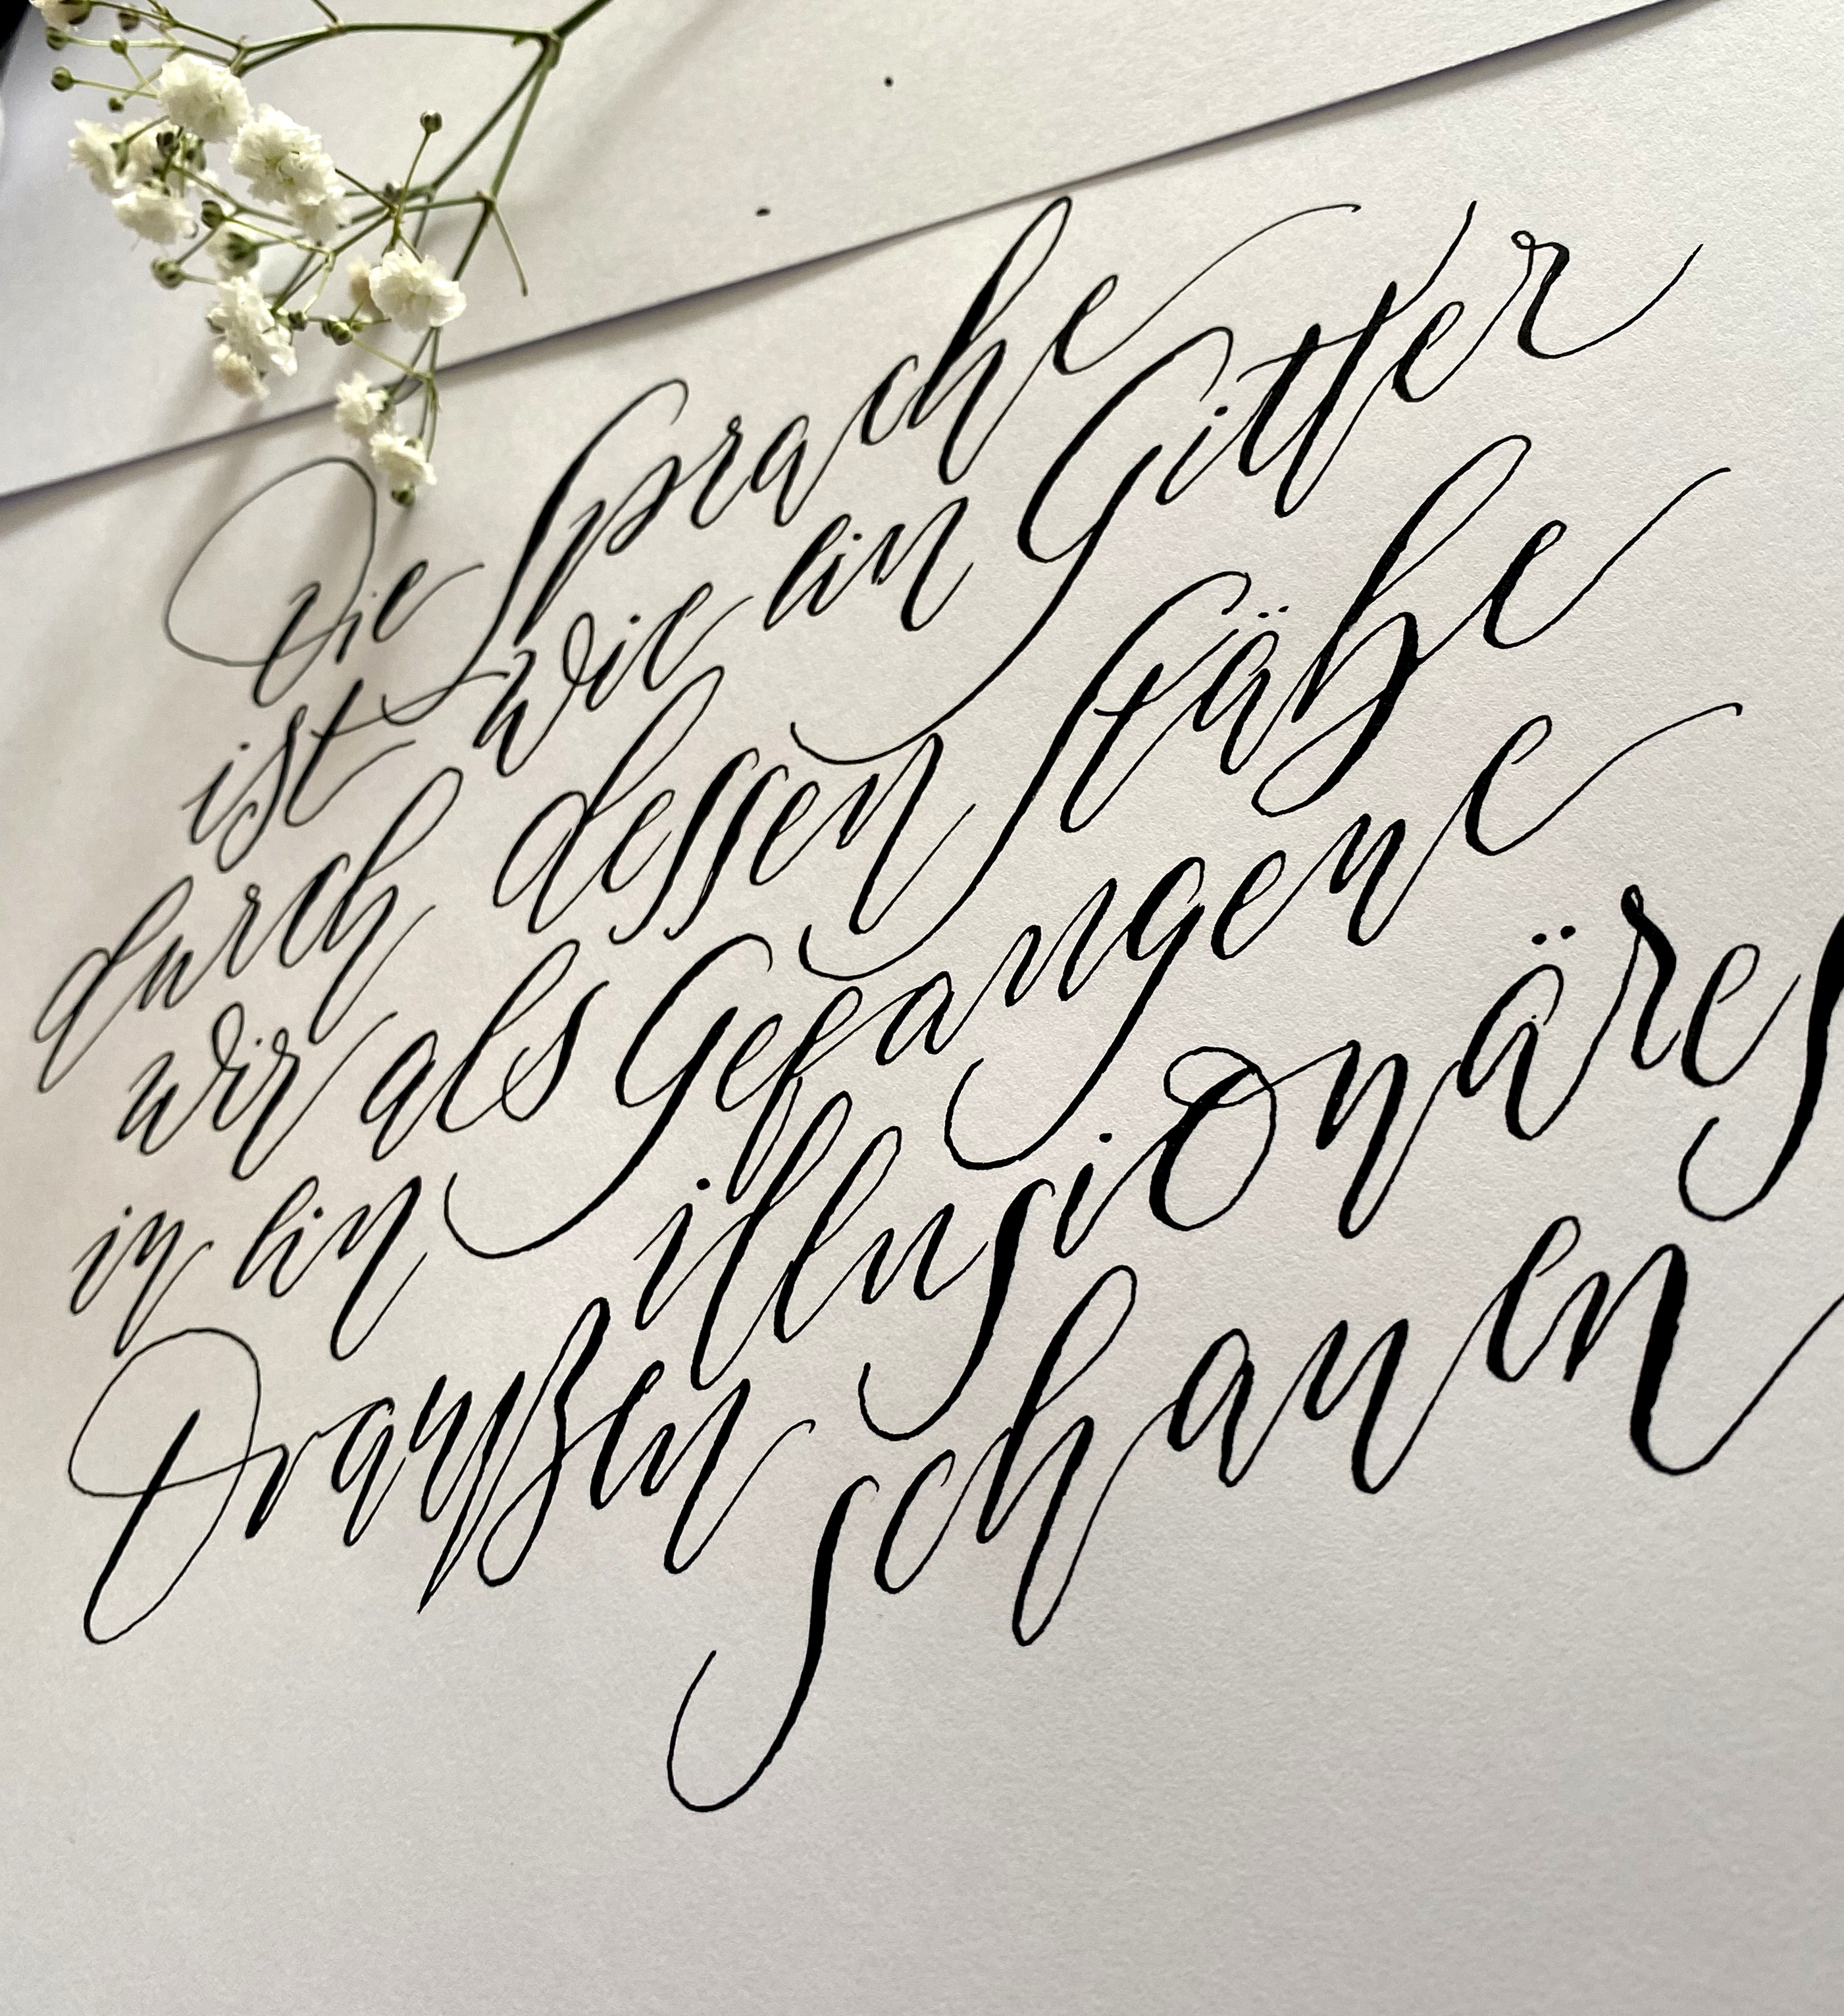 Die Sprache
ist wie ein Gitter
durch dessen Stäbe
wir als Gefangene
in ein illusionäres
Draußen schauen